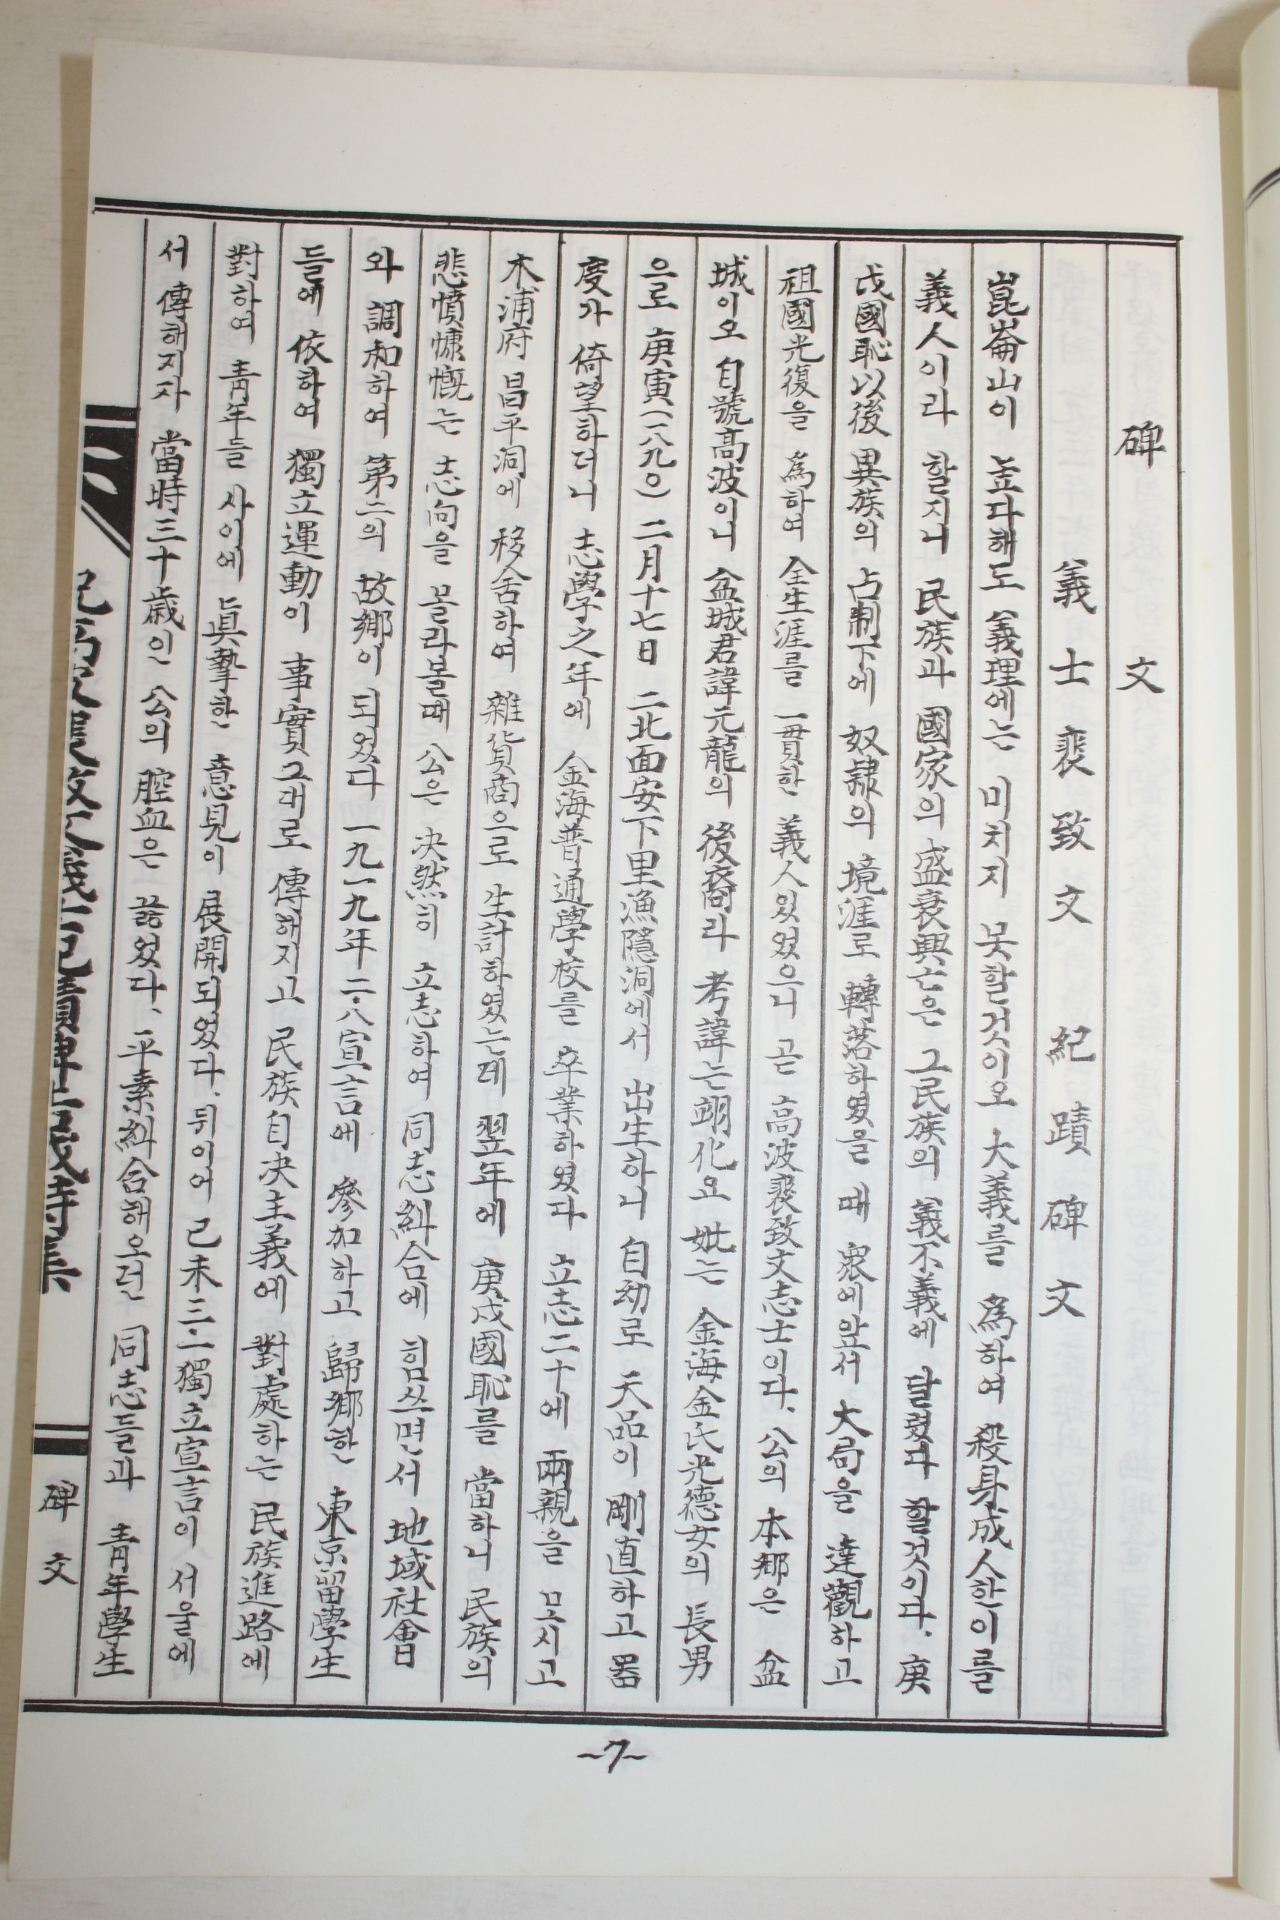 碑文
義士裵致文紀蹟碑文
崑崙山이 높다해도 義理에는 미치지 못할것이오 大義를 爲하여 殺身成人한이를
義人이라 할지니 民族과 國家의 盛衰興亡은 그民族의 義不義에 달렸다 할것이다. 庚
戌國恥以後 異族의 占制下에 奴隷의 境涯로 轉落하였을 때 衆에앞서 大局을 達觀하고
祖國光復을 爲하여 全生涯를 一貫한 義人있었으니 곧 高波裵致文志士이다. 公의 本鄕은 盆
城이오 自號高波이니 盆城君諱元龍의 後裔라 考諱는翊化요 妣는 金海金氏光德女의 長男
으로 庚寅(一八九○) 二月十七日 二北面安下里漁隱洞에서 出生하니 自幼로 天品이 剛直하고 器
度가 倚望하더니 志學之年에 金海普通學校를 卒業하였다 立志二十에 兩親을 모시고
木浦府 昌平洞에 移舍하여 雜貨商으로 生計하였는데 翌年에 庚戌國恥를 當하니 民族의
悲憤慷慨는 志向을 몰라볼때 公은 決然히 立志하여 同志糾合에 힘쓰면서 地域社會
와 調和하여 第二의 故鄕이 되었다 一九一九年二·八宣言에 參加하고 歸鄕한 東京留學生
들에 依하여 獨立運動이 事實그대로 傳해지고 民族自決主義에 對處하는 民族進路에
對하여 靑年들 사이에 眞摯한 意見이 展開되었다. 뒤이어 己未三·一獨立宣言이 서울에
서 傳해지자 當時三十歲인 公의 腔血은 끓었다. 平素糾合해오던 同志들과 靑年學生
碑文
~7~